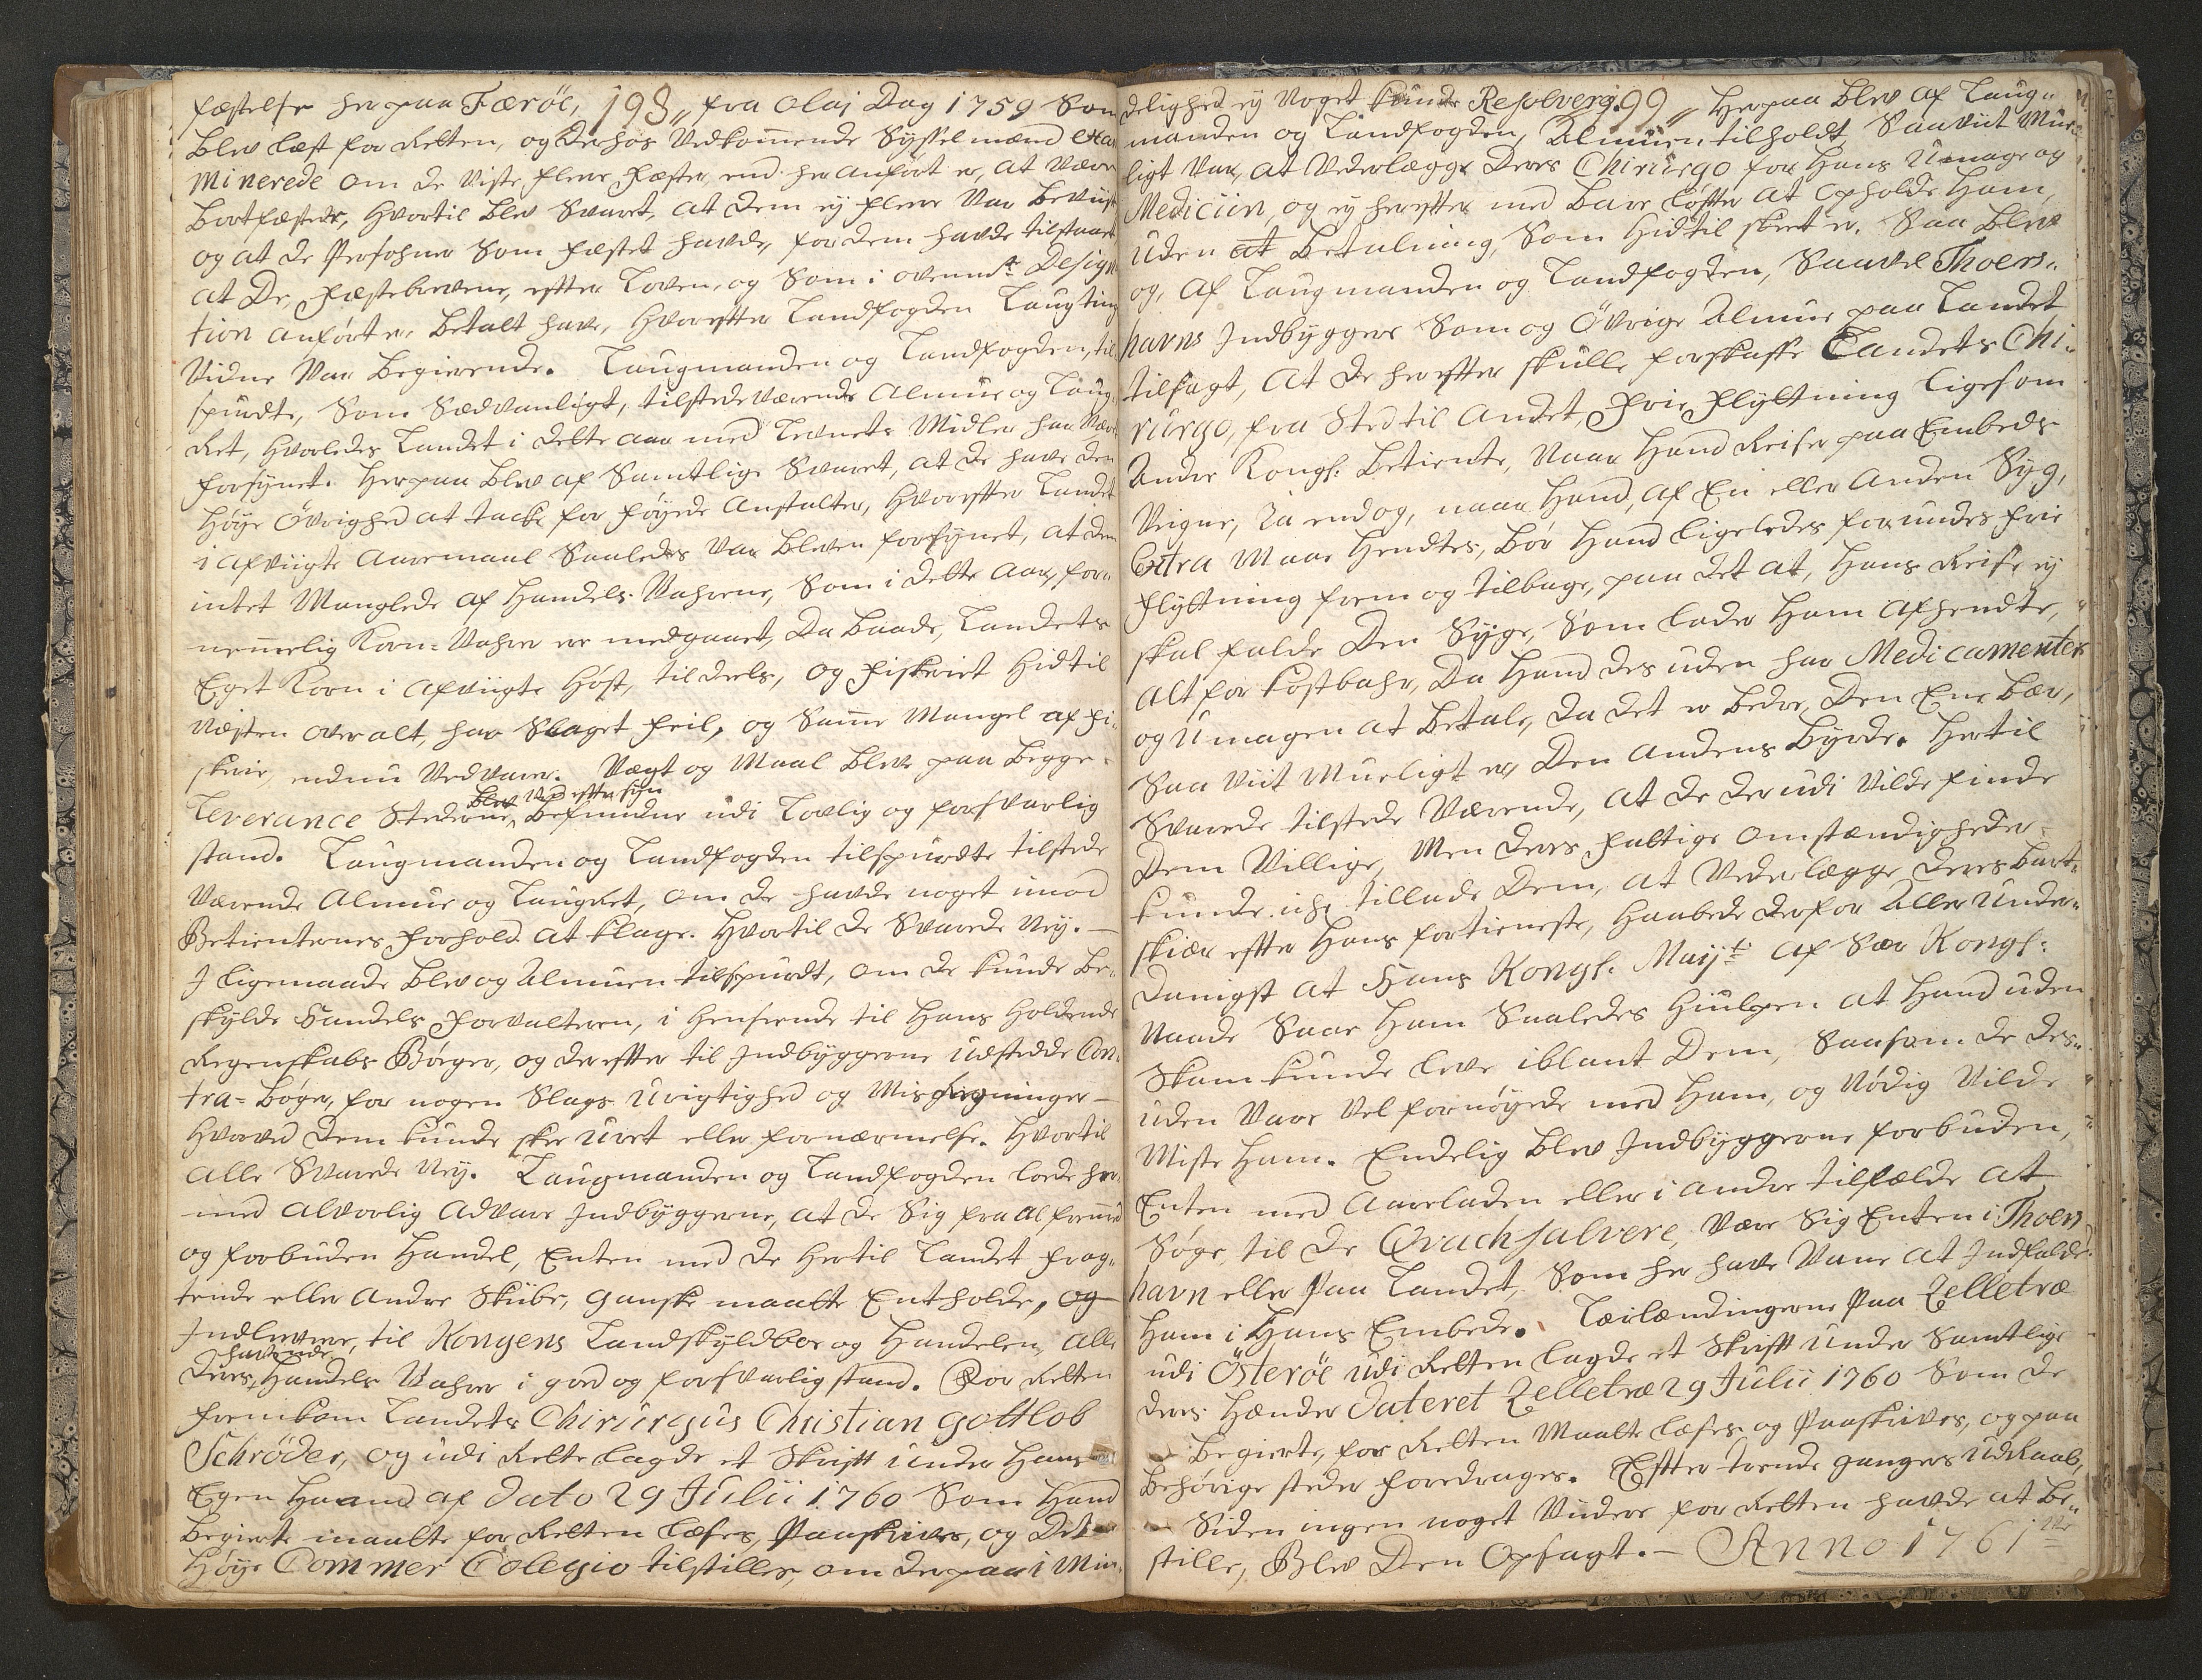 fæstelse her paa Færöe, 198,, fra Olaj Dag 1759 Som
Blev læst for Retten, og derhos Vedkom̄ende Syssel mænd Exa
minerede om de Viste flere Fæster, end her anfört er, at være
bortfæstede, Hvortil Blev Svaret, at dem ej flere Var beviist
og at de Persohner Som fæstet havde, for dem havde tilstaaet
at De, Fæstebrevene, efter Loven, og Som i ovenmt Designa
tion anfört er, betalt have, Hvorefter Landfogden Laugtings
Vidne Var begierende. Laugmanden og Landfogden, til
spurdte, Som Sædvanligt, tilstedeværende Almue og Laug
Ret, Hvorledes Landet i dette aar med Levnets Midler har Været
forsynet. Herpaa Blev af Samtlige Svaret, at de have den
Høye Øvrighed at takke for føyede Anstalter, Hvorefter Landet
i afvigte Aaremaal Saaledes Var bleven forsynet, at dem
intet Manglede af Handels Vahrene, Som i dette Aar, for
nem̄elig Korn-Vahre er medgaaet, Da baade, Landets
Eget Korn i afvigte Høst, til deels, og Fiskeriet Hidtil
Næsten over alt, har Slaget feil, og Sam̄e Mangel af Fi
skerie, endnu Vedvarer. Vægt og Maal Blev paa begge
Blev Ved efter syn
Leverance Stederne, befunden udi Lovlig og forsvarlig
stand. Laugmanden og Landfogden tilspurdte tilstede
Værende Almue og Laugret, om de havde noget imod
Betienternes Forhold at klage. Hvortil de Svarede Ney. —
I ligemaade Blev og Almuen tilspurdt, om de kunde be
skylde Handels Forvalteren, i henseende til Hans Holdende
Regenskabs Bøger, og derefter til Indbyggerne udstedde Con
tra-Bøger, for nogen Slags Urigtighed og Misregninger —
Hvorved dem kunde skee Uret eller fornærmelse. Hvortil
alle Svarede Ney. Laugmanden og Landfogden lode her
med alvorlig advare Indbyggerne, at de Sig fra al frem̄ed
og forbuden Handel, Enten med de Hertil Landet frag
tende eller Andre Skibe, ganske maatte Entholde, og
Indlevere, til Kongens Landskyldboe og Handelen, alle
havende
deres, Handels Vahre i goed og forsvarlig stand. For Retten
fremkom Landets Chirurgus Christian Gottlob
Schrøder, og udi Rette lagde et Skrift under Hans
Egen Haand af dato 29 Julii 1760 Som Hand
begierte maatte for Retten læses, Paaskrives, og Det
Høye Commer Colegio tilstilles, om derpaa i Min
delighed ej Noget kunde Resolveris. 99,, Herpaa Blev af Laug
manden og Landfogden, Almuen tilholdt, Saavidt Mue
ligt Var, at Vederlægge deres Chirurgo for Hans Umage og
Medicin, og ej herefter med bare løfter at opholde Ham,
uden at betalning, Som Hidtil skeet er. Saa Blev
og, af Laugmanden og Landfogden, Saavel Thoers
havns Indbyggere Som og Øvrige Almue paa Landet
tilsagt, at de herefter skulle forskaffe Landets Chi
rurgo, fra Sted til Andet, Frie Flyttning ligesom
Andre Kongl: betiente, Naar Hand Reiser paa Embeds
Veigne, Ja end og, naar Hand, af En eller Anden Syg,
Extra Maae Hendtes, bør Hand ligeledes forundes frie
Flyttning frem og tilbage, paa det at, Hans Reise ej
skal falde Den Syge, Som lader Ham afhendte,
alt for kostbahr, Da Hand des uden har Medicamenter
og Umagen at betale, da det er bedre, Den Ene bær,
Saa Viit Mueligt er, Den Andens byrde. Hertil
Svarede tilstede Værende, at de derudi Vilde finde
Dem Villige, Men deres fattige Omstændigheder
kunde icke tillade Dem, at Vederlægge deres bart
skiær efter Hans fortieneste, Haabede derfor Aller under
danigst at Hans Kongl. Mayt af Sær Kongl:
Naade Saae Ham Saaledes Hiulpen at Hand uden
Skam kunde leve iblant Dem, Saasom de des
uden Vare Vel fornøyede med Ham, og Nødig Vilde
Miste Ham. Endelig Blev Indbyggerne forbuden,
Enten med Aareladen eller i andre tilfælde at
Søge, til de Qvachsalvere, Være Sig Enten i Thoers
havn eller Paa Landet, Som her have Vane at Indfalde
Ham i Hans Embede. Leilændingerne Paa Zelletræ
udi Österöe udi Retten lagde et Skrift under Samtlige
deres Hænder Dateret Zelletræ 29 Julii 1760 Som de
begierte, for Retten Maatte læses og Paaskrives, og paa
behørige steder foredrages. Efter trende ganges udRaab,
Siden ingen noget Videre for Retten havde at be
stille, Blev Den Opsagt. — Anno 1761